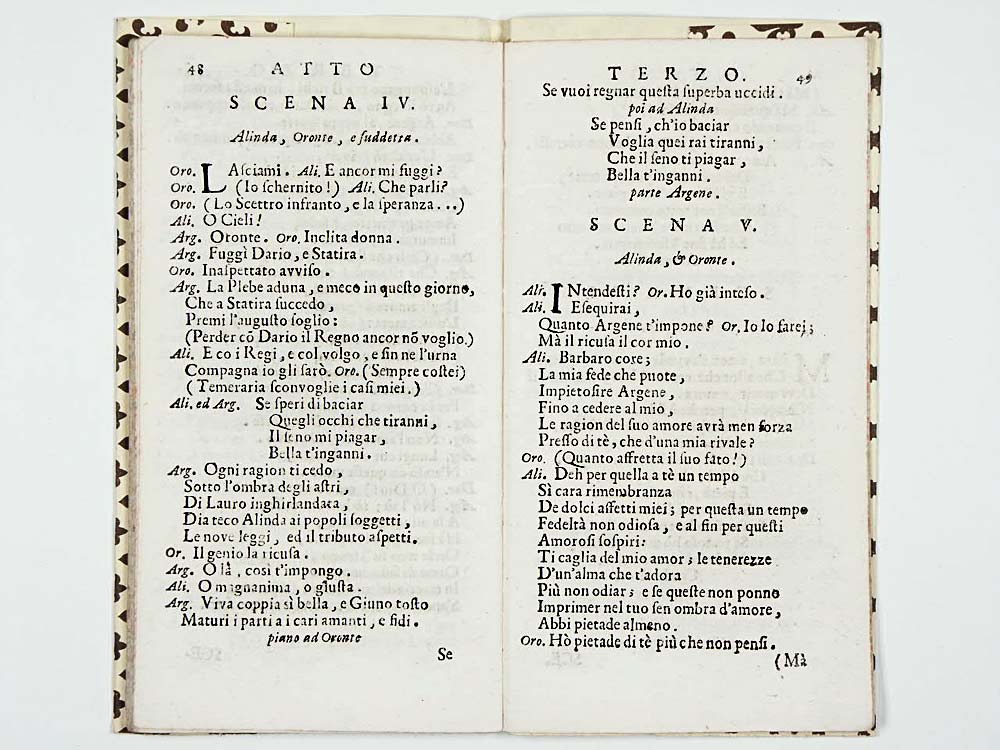 48 ATTO
SCENA IV.
Alinda, Oronte, e suddetta.
Oro. LAsciami. Ali. E ancor mi fuggi?
Oro. (Io schernito!) Ali. Che parli?
Oro. (Lo Scettro infranto, e la speranza...)
Ali. O Cieli!
Arg. Oronte. Oro. Inclita donna.
Arg. Fuggì Dario, e Statira.
Oro. Inaspettato avviso.
Arg. La Plebe aduna, e meco in questo giorno,
Che a Statira succedo,
Premi l'augusto soglio:
(Perder cõ Dario il Regno ancor nõ voglio.)
Ali. E co i Regi, e col volgo, e fin ne l'urna
Compagna io gli sarò. Oro. (Sempre costei)
(Temeraria sconvoglie i casi miei.)
Ali. ed Arg. Se speri di baciar
Quegli occhi che tiranni,
Il seno mi piagar,
Bella t'inganni.
Arg. Ogni ragion ti cedo,
Sotto l'ombra degli astri,
Di Lauro inghirlandata,
Dia teco Alinda ai popoli soggetti,
Le nove leggi, ed il tributo aspetti.
Or. Il genio la ricusa.
Arg. O là, così t'impongo.
Ali. O magnanima, o giusta.
Arg. Viva coppia sì bella, e Giuno tosto
Maturi i parti a i cari amanti, e fidi.
piano ad Oronte
Se
TERZO. 49
Se vuoi regnar questa superba uccidi.
poi ad Alinda
Se pensi, ch'io baciar
Voglia quei rai tiranni,
Che il seno ti piagar,
Bella t'inganni.
parte Argene.
SCENA V.
Alinda, & Oronte.
Ali. INtendesti? Or. Ho già inteso.
Ali. Esequirai,
Quanto Argene t'impone? Or. Io lo farei;
Mà il ricusa il cor mio.
Ali. Barbaro core;
La mia fede che puote,
Impietosire Argene,
Fino a cedere al mio,
Le ragion del suo amore avrà men forza
Presso di tè, che d'una mia rivale?
Oro. (Quanto affretta il suo fato!)
Ali. Deh per quella a tè un tempo
Sì cara rimembranza
De dolci affetti miei; per questa un tempo
Fedeltà non odiosa, e al fin per questi
Amorosi sospiri:
Ti caglia del mio amor; le tenerezze
D'un'alma che t'adora
Più non odiar; e se queste non ponno
Imprimer nel tuo sen ombra d'amore,
Abbi pietade almeno.
Oro. Hò pietade di tè più che non pensi.
(Mà